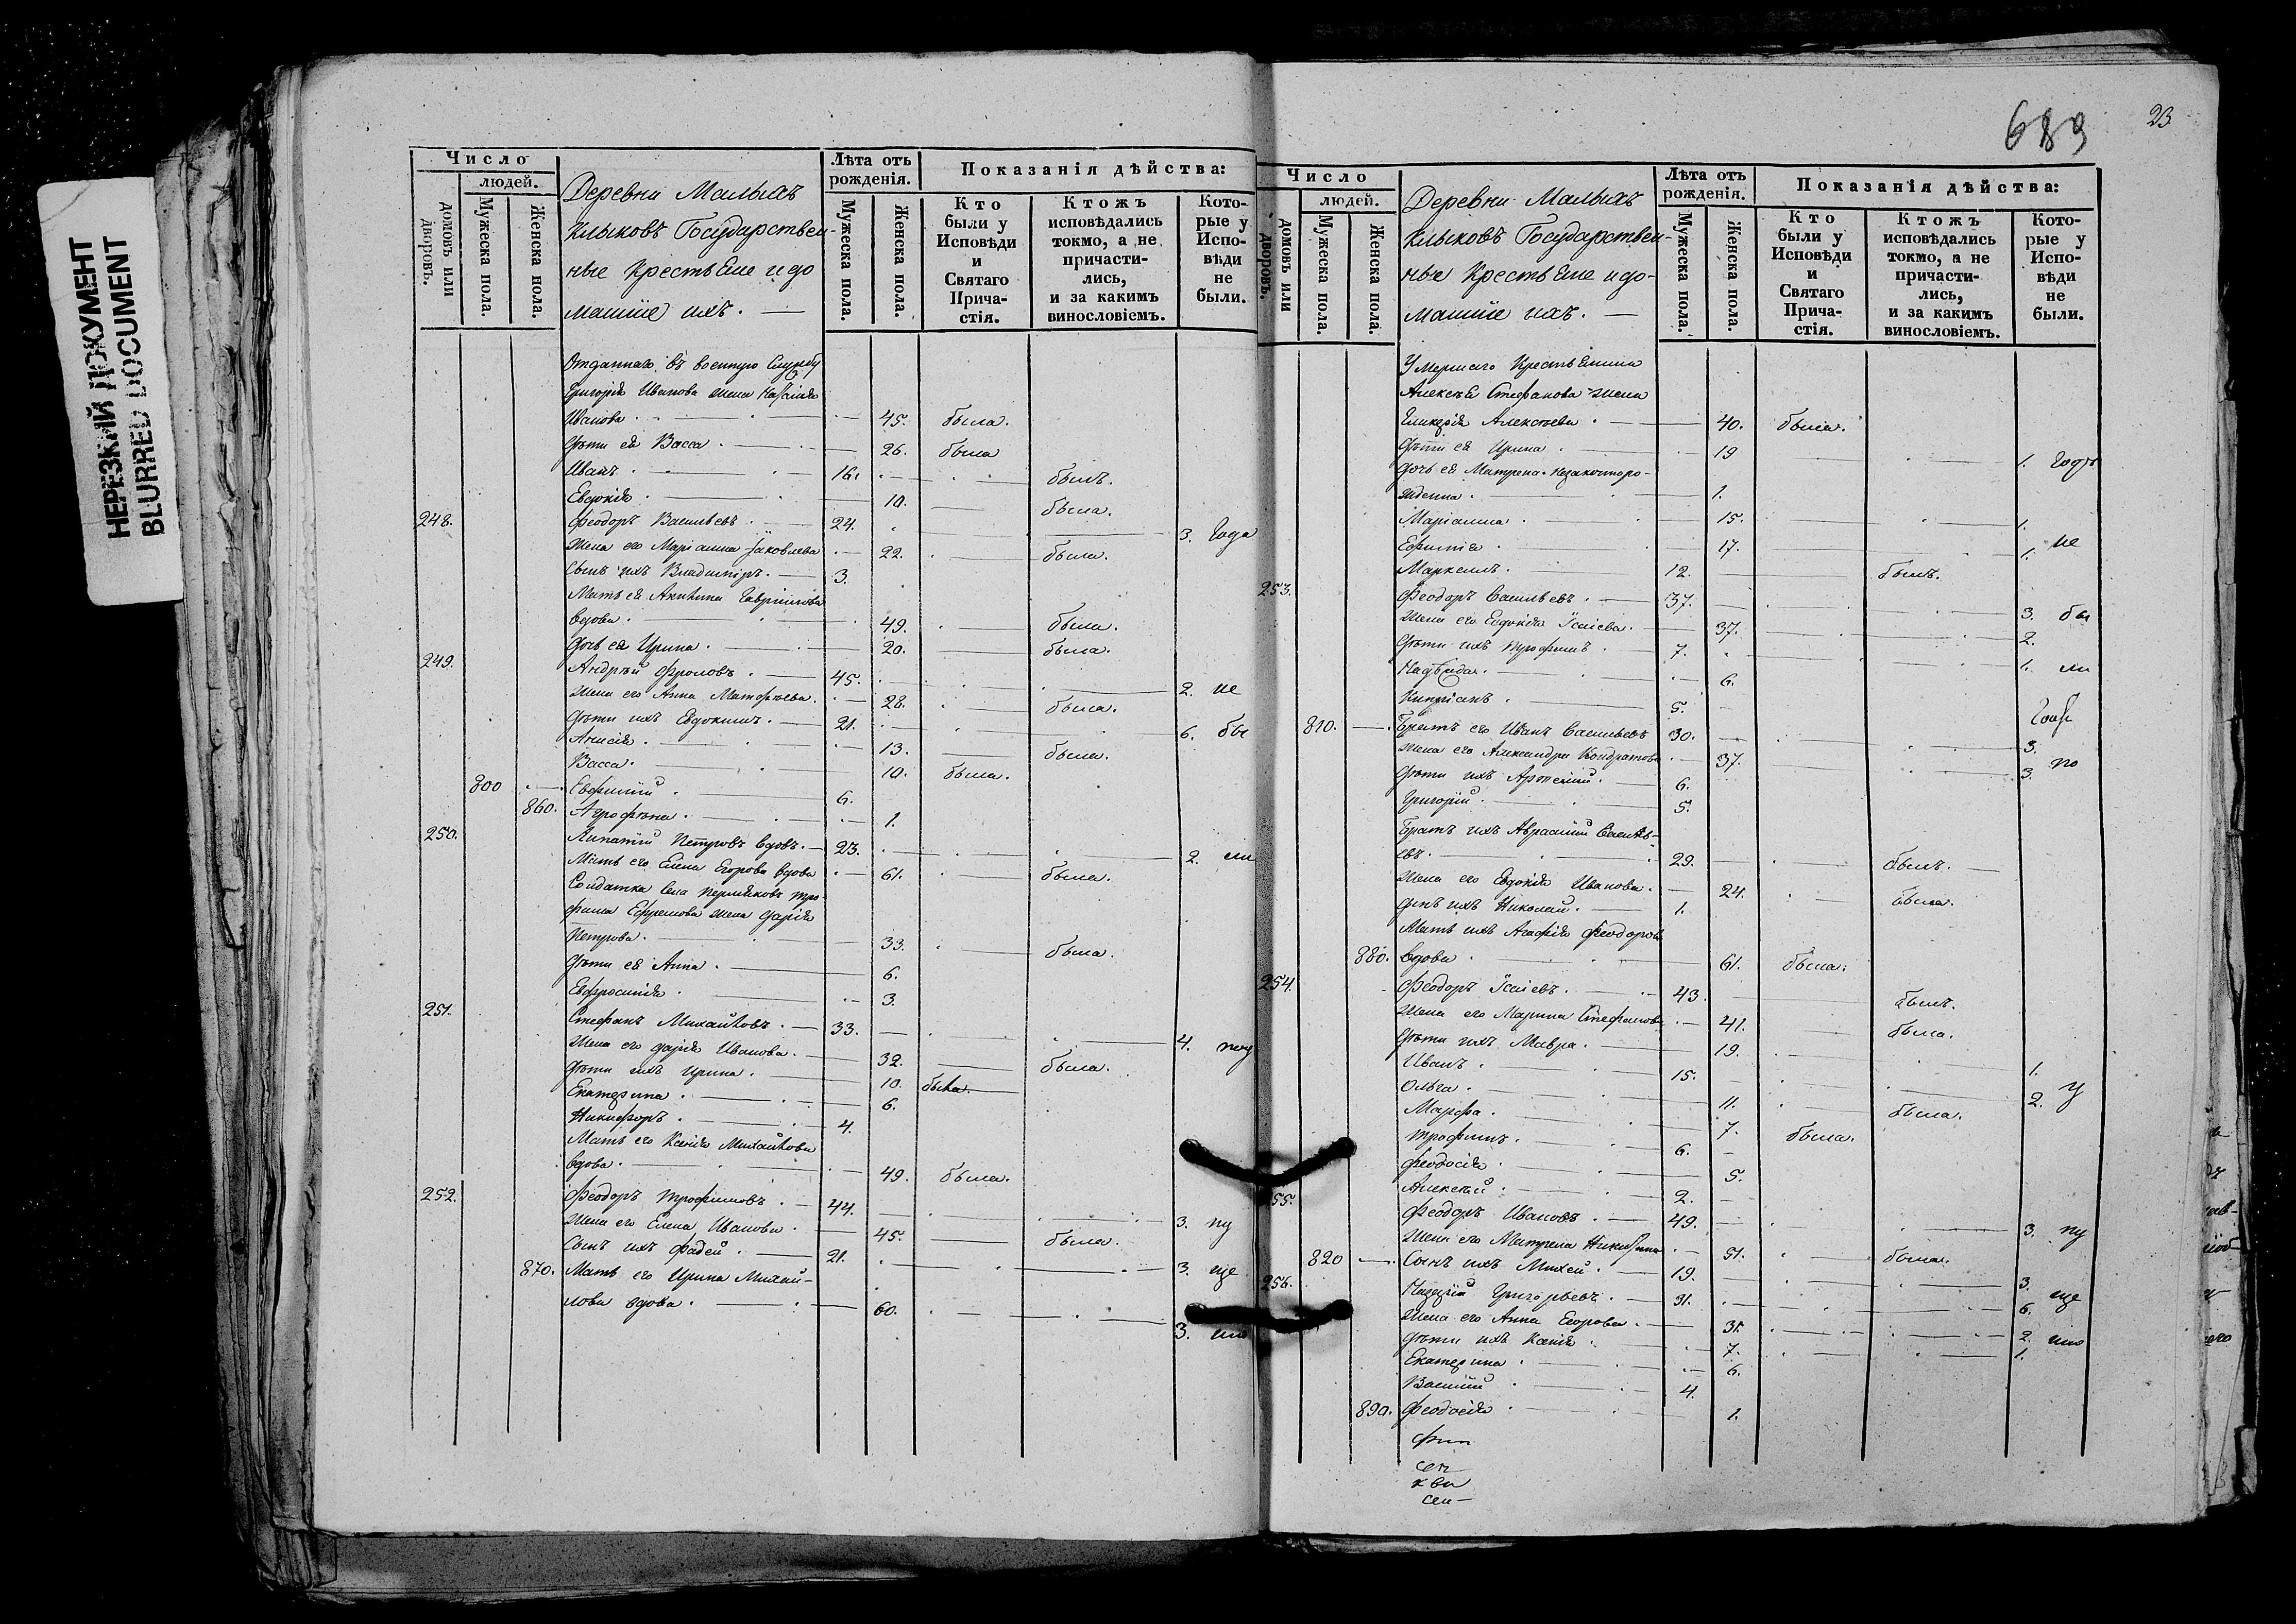 НЕРЕЗКИЙ ДОКУМЕНТ
BLURRED DOCUMENT
Число
людей.
домовъ или дворовъ.
Мужеска пола.
Женска пола.
Деревни Малыхъ
Клыковъ Государствен-
ные КрестьЯне и до
машніе ихъ. —
Лѣта отъ рожденія.
Мужеска пола.
Женска пола.
Показанія дѣйства:
Кто были у Исповѣди и Святаго Прича-стія.
Ктожъ исповѣдались токмо, а не причасти-лись, и за какимъ винословіемъ.
Кото-рые у Испо-вѣди не были.
Отданнаго въ военную Службу
Григорія Иванова жена
Иванова 45. была.
Дѣти ея Васса 26. была
Иванъ 16. былъ.
Евдокія 10. была.
248. Феодоръ Васильевъ 24. 3. Года
Жена его Маріанна Іаковлева 22. была.
Сынъ ихъ Владиміръ 3.
Мать ея Акилина Гавріилова
вдова 49. была.
Дочь ея Ирина 20. была.
249. Андрей Фроловъ 45. 2. не
Жена его Анна Матѳѣева 28. была.
Дѣти ихъ Евдокимъ 21. 6. бы
Анисія 13. была.
Васса 10. была.
800 Евфимій 6.
860. Агрофѣна 1.
250. Липатій Петровъ вдовъ 23. 2. ли
Мать его Елена Егорова вдова 61. была.
Солдатка Села Пермяковъ Тро-
фима Ефремова жена Дарія
Петрова 33. была.
Дѣти ея Анна 6.
Евфросинія 3.
251. Стефанъ Михайловъ 33. 4. поу
Жена его Дарія Иванова 32. была.
Дѣти ихъ Ирина 10. была.
Екатерина 6.
Никифоръ 4.
Мать его Ксенія Михайлова
вдова 49. была.
252. Феодоръ Трофимовъ 44. 3. пу
Жена его Елена Иванова 45. была.
Сынъ ихъ Фадей 21. 3. ще
870. Мать его Ирина Михай-
лова вдова 60. 3. нію
689 23
Число
людей.
домовъ или дворовъ.
Мужеска пола.
Женска пола.
Деревни Малыхъ
Клыковъ Государствен-
ные КрестьЯне и до-
машніе ихъ. —
Лѣта отъ рожденія.
Мужеска пола.
Женска пола.
Показанія дѣйства:
Кто были у Исповѣди и Святаго Прича-стія.
Ктожъ исповѣдались токмо, а не причасти-лись, и за какимъ винословіемъ.
Кото-рые у Испо-вѣди не были.
Умершаго КрестьЯнина
Алексѣя Стефанова жена
Гликерія Алексѣева 40. была.
Дѣти ея Ирина 19 1. Годъ
Дочь ея Матрена незаконноро-
жденна 1.
Маріанна 15. 1.
Ефимія 17. 1. не
Маркеллъ 12. былъ.
253. Феодоръ Васильевъ 37. 3. бы
Жена его Евдокія Ісаіева 37. 2.
Дѣти ихъ Трофимъ 7. 1. ли
Надежда 6.
Кипріанъ 5.
810. Братъ его Иванъ Васильевъ 30. 3.
Жена его Александра Кондратова 37. 3. по
Дѣти ихъ Арсеній 6.
Григорій 5.
Братъ ихъ Аврамій Василь-
евъ 29. былъ.
Жена его Евдокія Иванова 24. была.
Сынъ ихъ Николай 1.
Мать ихъ Агафія Феодорова
880. вдова 61. была.
254. Феодоръ Ісаіевъ 43. былъ.
Жена его Марина Стефанова 41. была.
Дѣти ихъ Мавра 19. 1.
Иванъ 15. 2. У
Ольга 11. была.
Марфа 7. была.
Трофимъ 6.
Феодосія 5.
Алексѣй 2.
255. Феодоръ Ивановъ 49. 3. пу
Жена его Матрена Никифорова 51. была.
820 Сынъ ихъ Михей 19. 3. ще
256. Григорьевъ 31. 6.
Жена его Анна Егорова 31. 2. нію
Дѣти ихъ Ксенія 7. 1.
Екатерина 6.
Василій 4.
890. Феодосія 1.